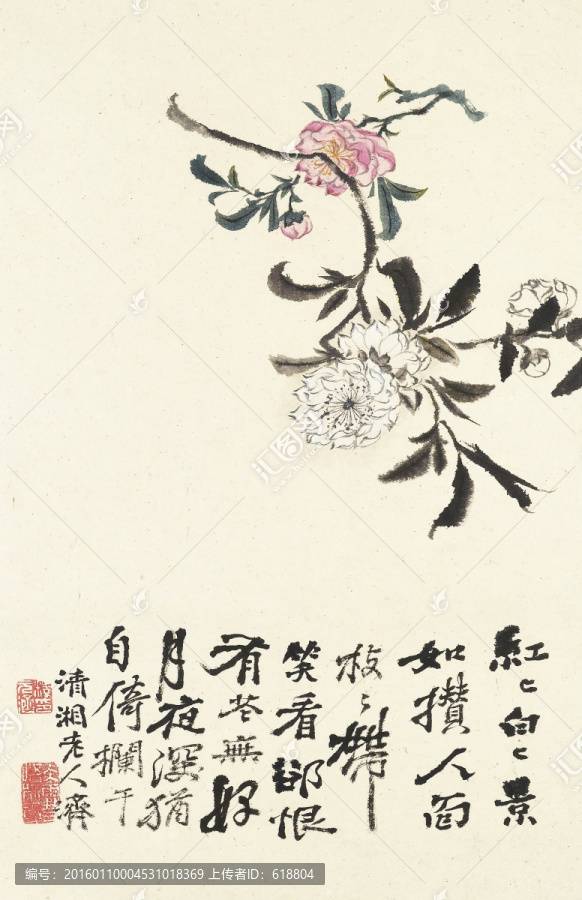 紅〻白〻景
如攢人面
枝〻帶
笑看卻恨
有花無好
月夜深猶
自倚欄干
清湘老人濟
编号：20160110004531018369 上传者ID：618804
汇图网